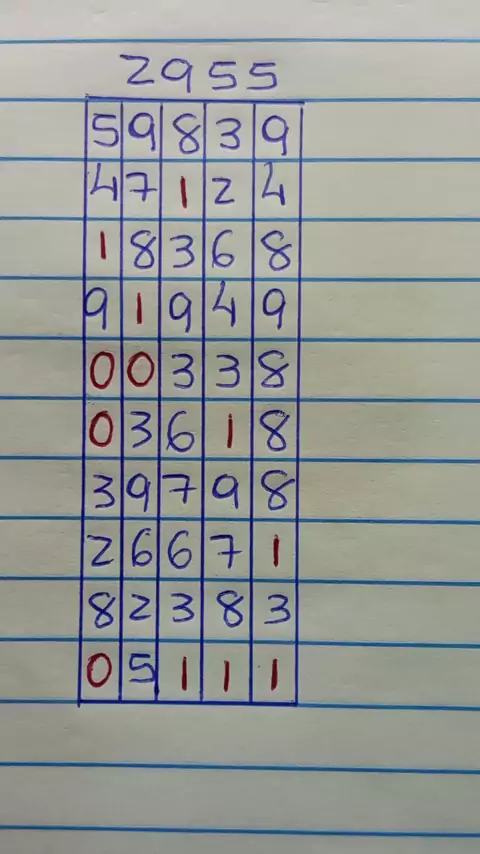 2955
5 9 8 3 9
4 7 1 2 4
1 8 3 6 8
9 1 9 4 9
0 0 3 3 8
0 3 6 1 8
3 9 7 9 8
2 6 6 7 1
8 2 3 8 3
0 5 1 1 1